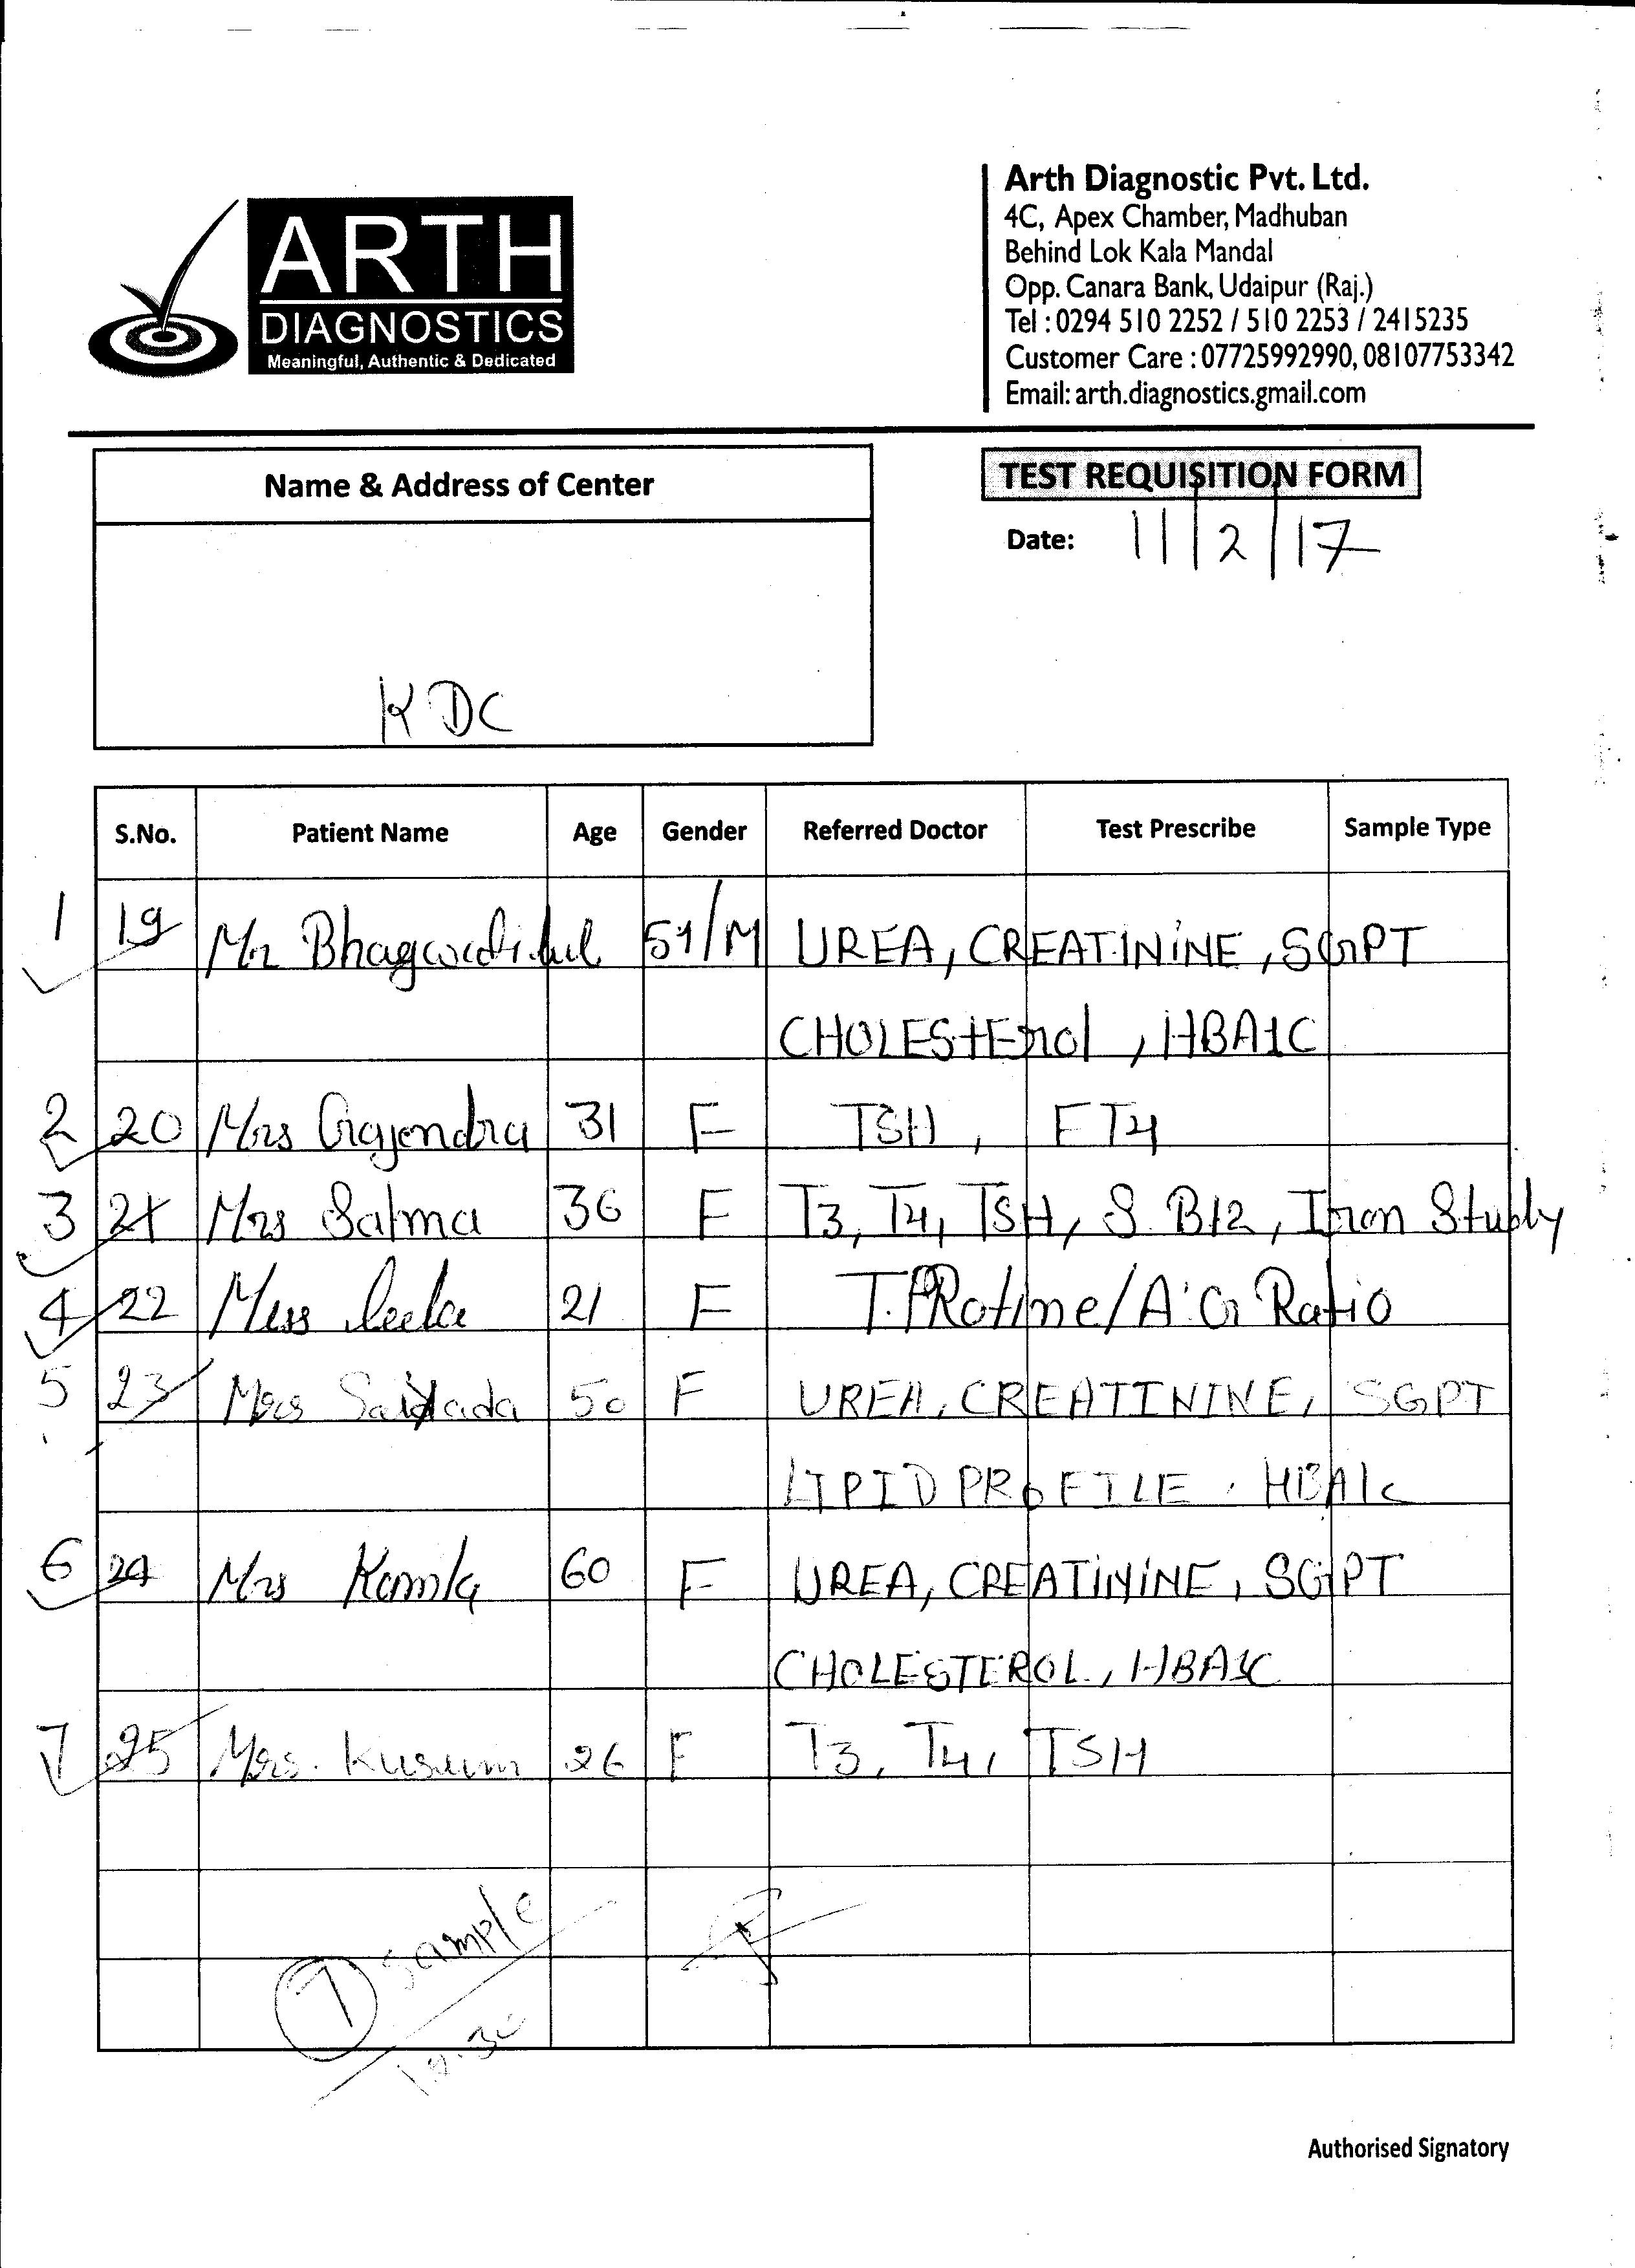 ARTH
DIAGNOSTICS
Meaningful, Authentic & Dedicated
Arth Diagnostic Pvt. Ltd.
4C, Apex Chamber, Madhuban
Behind Lok Kala Mandal
Opp. Canara Bank, Udaipur (Raj.)
Tel : 0294 510 2252 / 510 2253 / 2415235
Customer Care : 07725992990, 08107753342
Email: arth.diagnostics.gmail.com
Name & Address of Center
KDC
TEST REQUISITION FORM
Date: 11/2/17
S.No. Patient Name Age Gender Referred Doctor Test Prescribe Sample Type
1 19 Mr 51/M UREA, CREATININE, SGPT
CHOLESTErol, HBA1C
2 20 Mrs Gajendra 31 F TSH, FT4
3 21 Mrs Salma 36 F T3, T4, TSH, S. B12, Iron Study
4 22 Miss Leela 21 F T.PRotine/A:G Ratio
5 23 Mrs 50 F UREA, CREATININE, SGPT
LIPID PROFILE, HBA1c
6 24 Mrs Kamla 60 F UREA, CREATININE, SGPT
CHOLESTEROL, HBA1C
7 25 Mrs. Kusum 26 F T3, T4, TSH
7 sample
Authorised Signatory